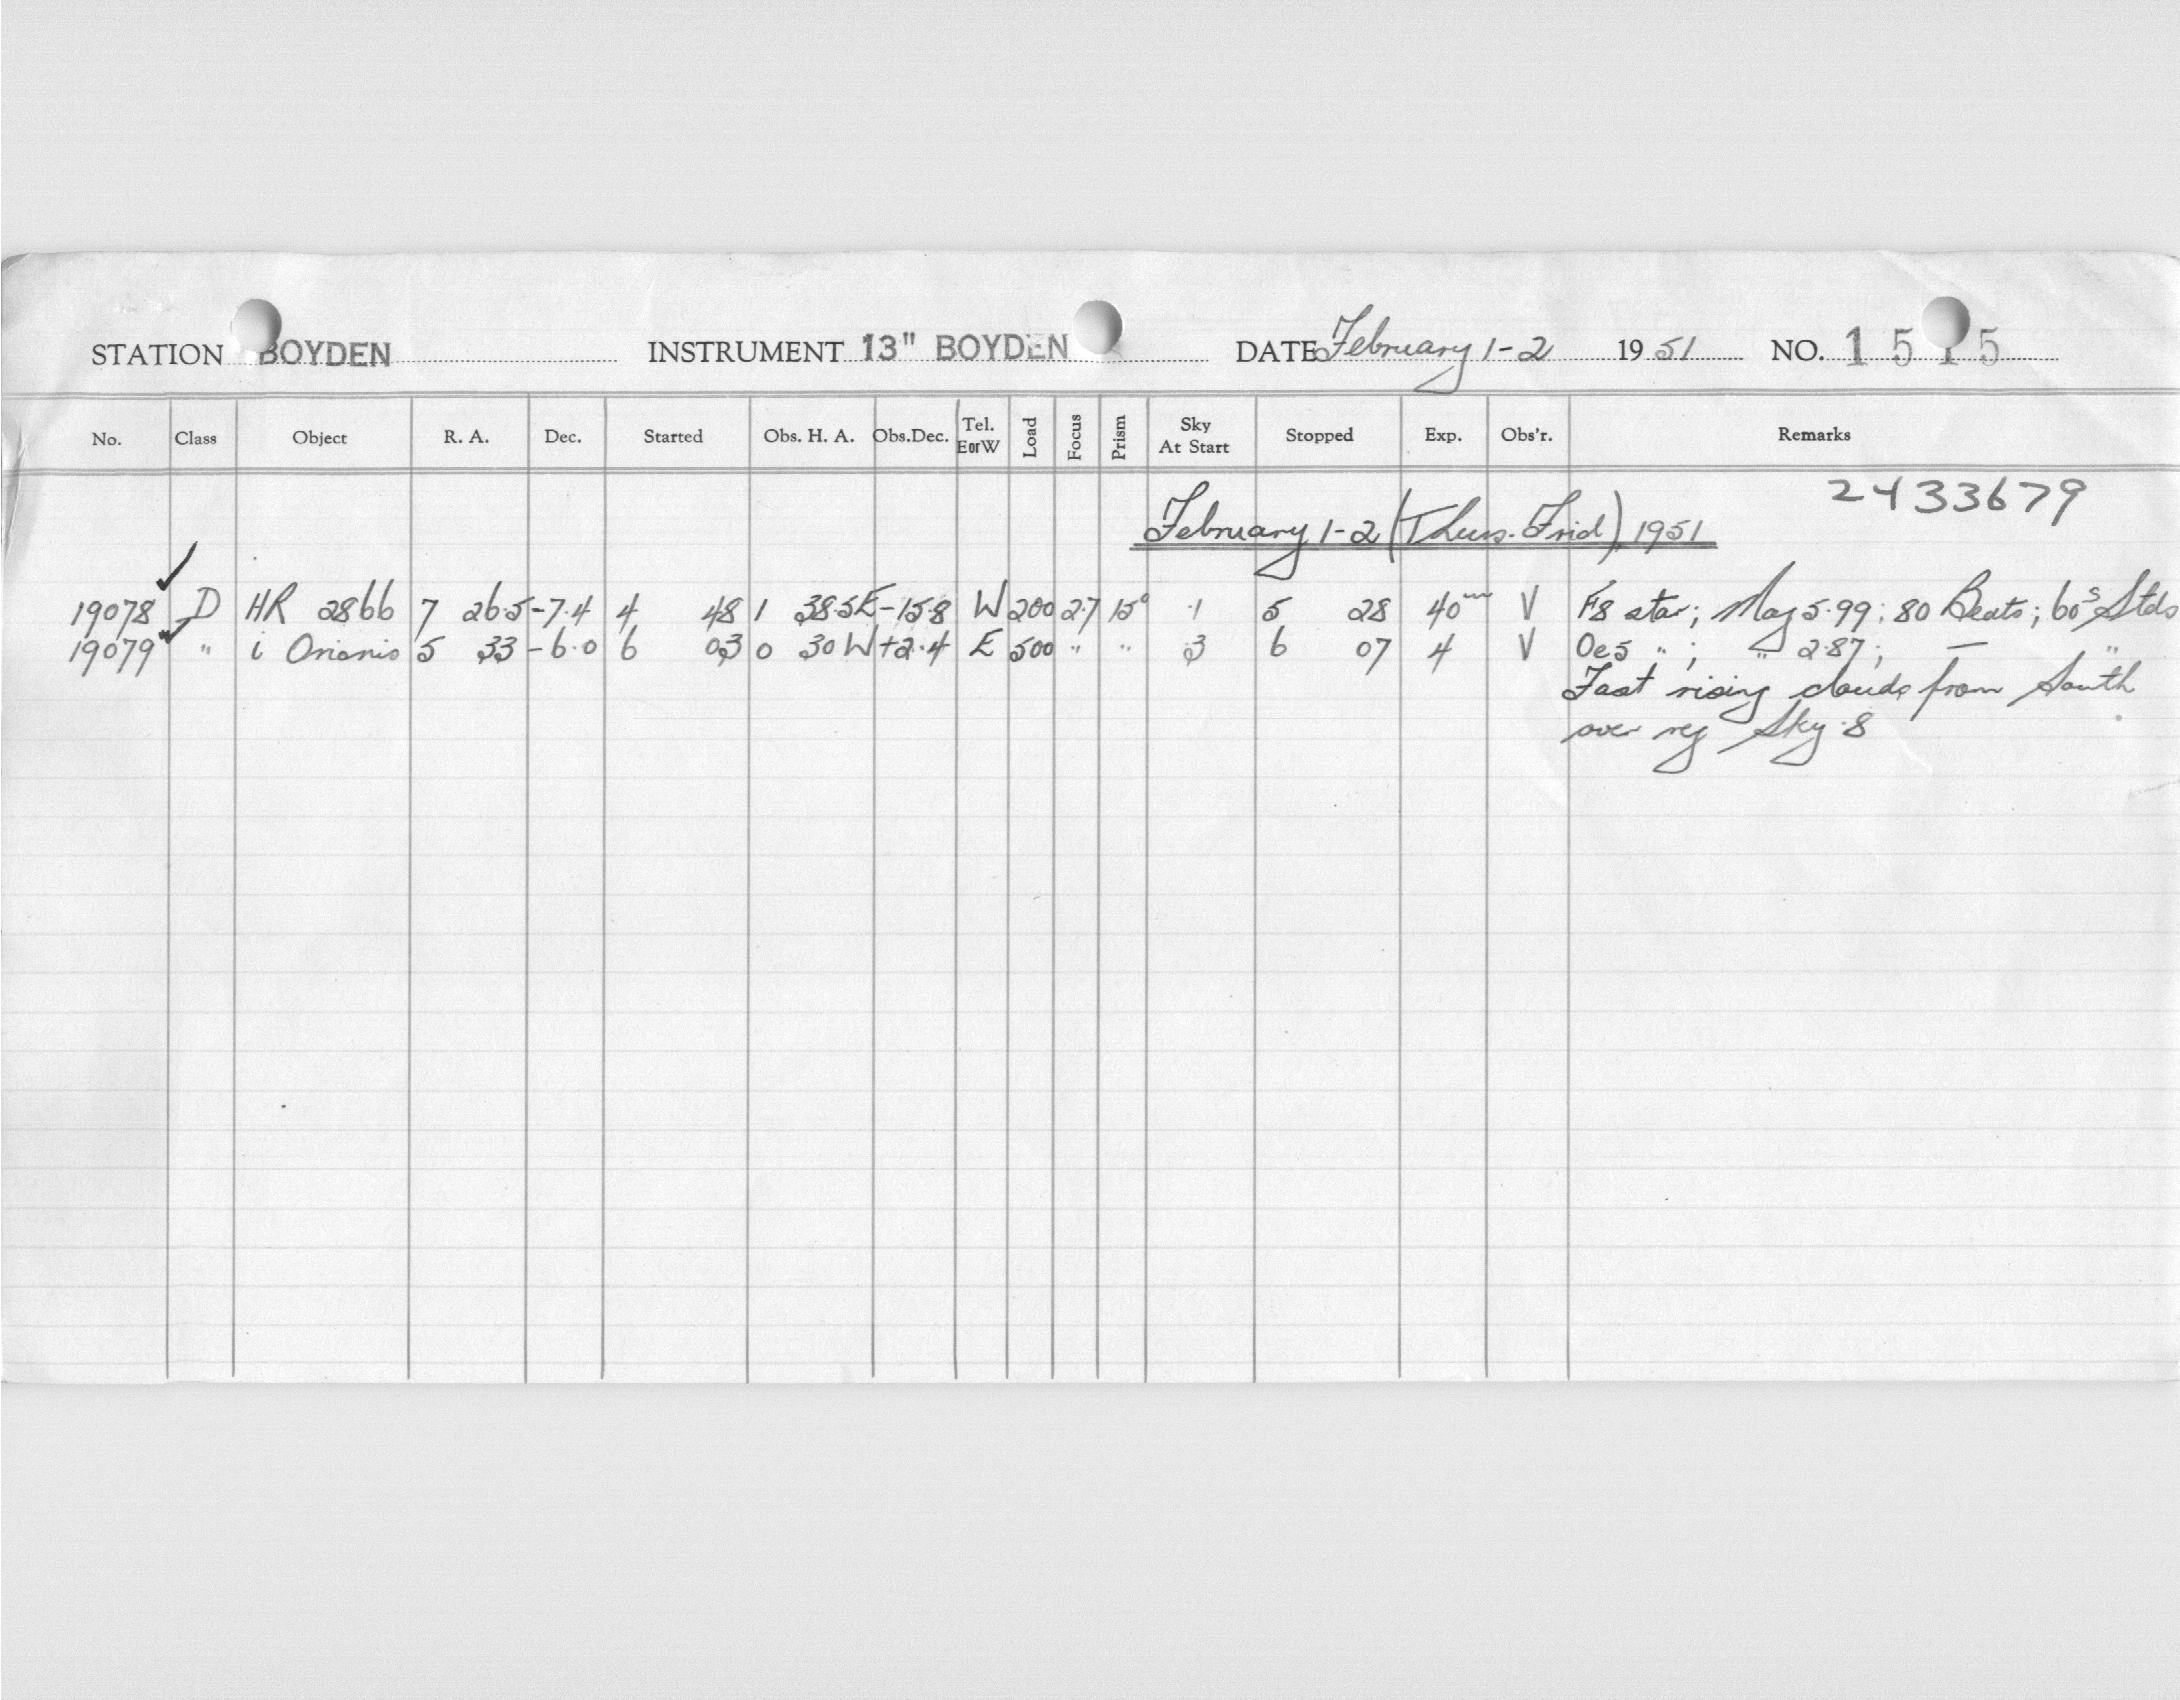 STATION BOYDEN INSTRUMENT 13" BOYDEN DATE February 1-2 1951 NO. 1515
No. Class Object R. A. Dec. Started Obs. H. A. Obs.Dec. Tel. E or W Load Focus Prism Sky At Start Stopped Exp. Obs'r. Remarks
2433679
February 1-2 (Thurs.-Frid), 1951
✓
19078 D HR 2866 7 26.5 -7.4 4 48 1 38.5E -15.8 W 200 2.7 15° .1 5 28 40m V F8 star; Mag 5.99; 80 Beats; 60s Stds
19079 ✓ " i Orionis 5 33 -6.0 6 03 0 30W +2.4 E 500 " " .3 6 07 4 V Oe5 " ; " 2.87; — "
Fast rising clouds from South
over reg Sky .8